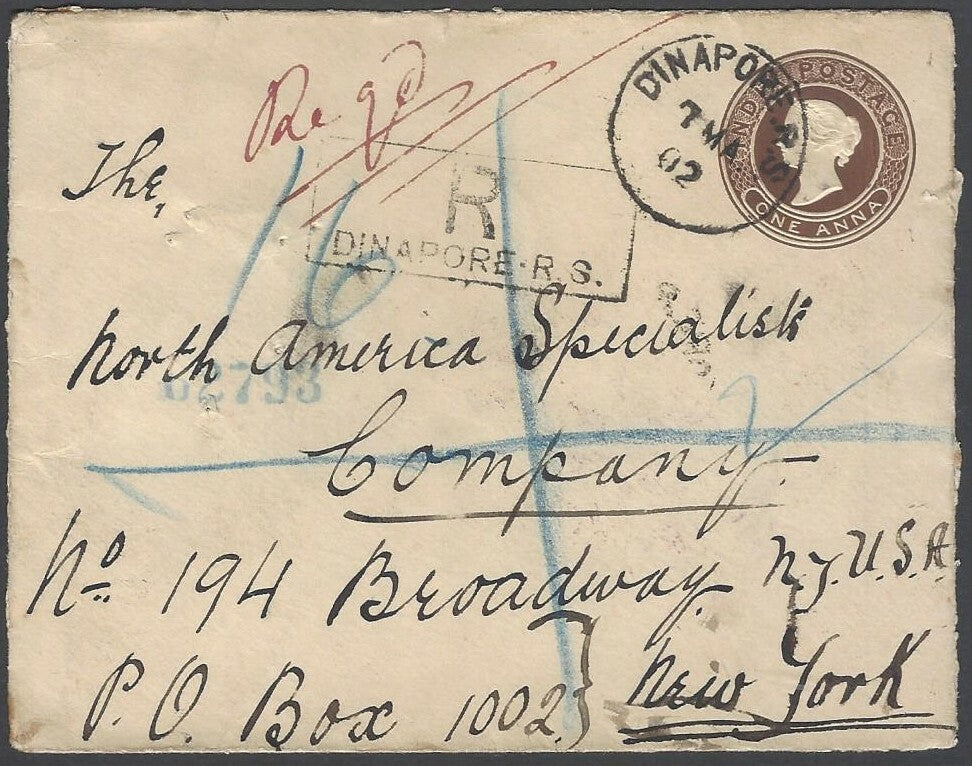 Regd
DINAPORE.R.S.
7 MA
02
INDIA POSTAGE
ONE ANNA
The,
16
R
DINAPORE-R.S.
North America Specialists
62793
Company.
No. 194 Broadway. N.Y. U.S.A
P.O. Box 1002} New York